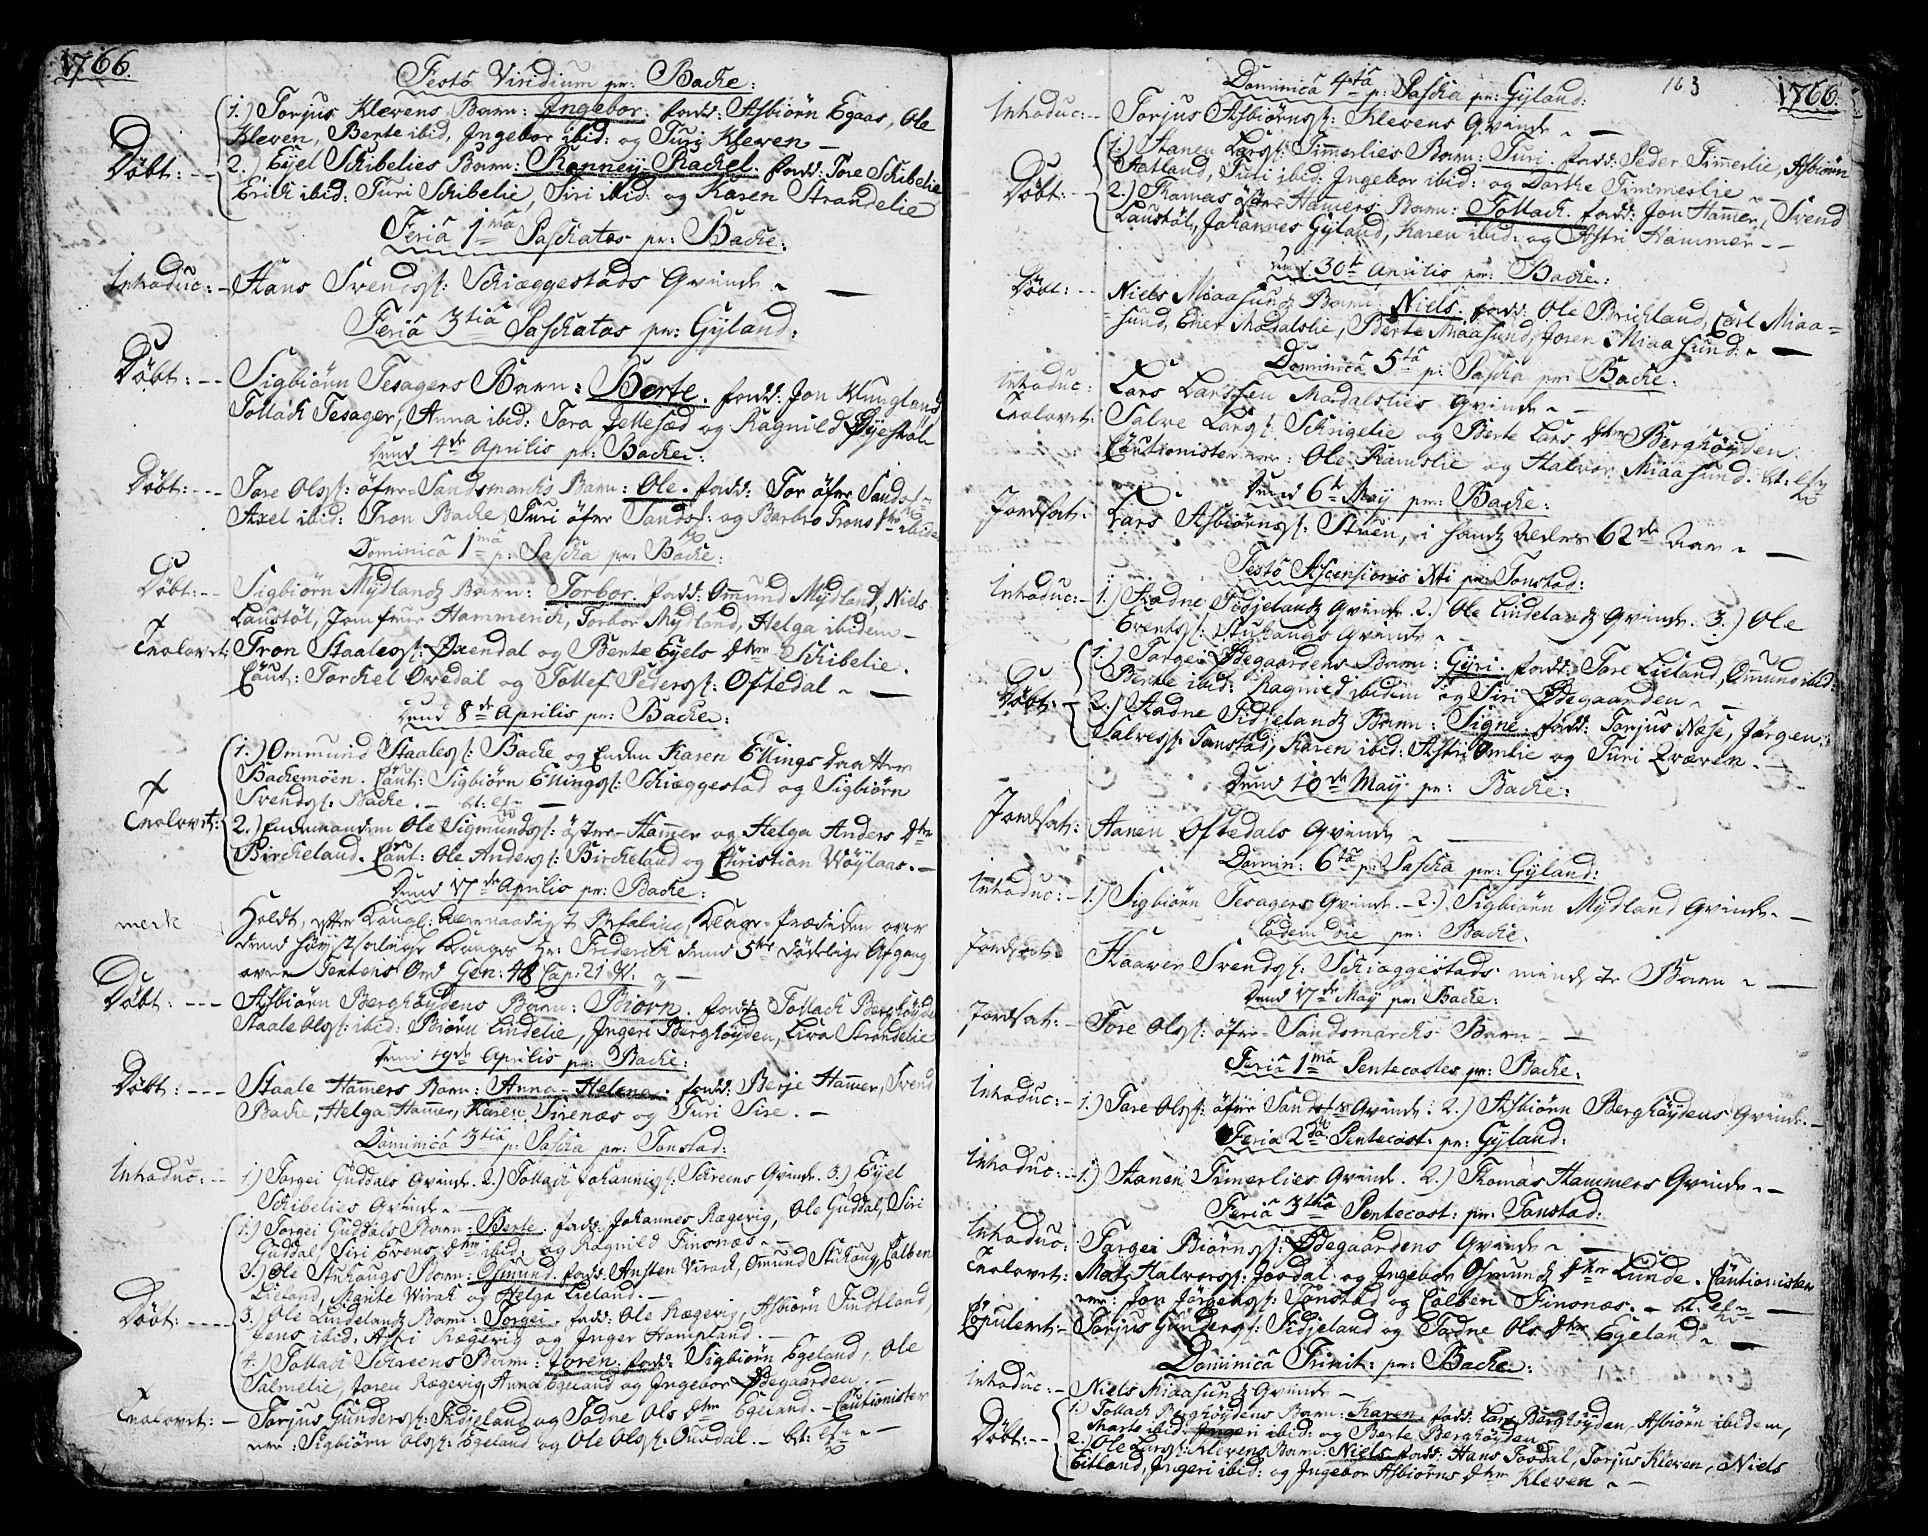 1766.
Festo Viridium pr: Backe:
1.) Torjus Klevens Barn: Ingebor. fadd: Asbiörn Egaas, Ole
Kleven, Berte ibid, Ingebor ibid: og Turi Kleven —
Döbt: -- 2.) Eyel Schibelies Barn: Ranney Rachel. fadd: Tore Schibelie
Erich ibid: Turi Schibelie, Siri ibid: og Karen Strandelie
Feria 1ma Paschatos pr: Backe:
Introduc: - Hans Svends: Schiæggestads Qvinde. —
Feria 3tia Paschatos pr: Gyland:
Döbt: -- Sigbiörn Tesagers Barn: Berte. fadd: Jon Klungland
Tollach Tesager, Anna ibid: Tora Jettesæd og Ragnild Øyestöl
Dend 4de Aprilis pr: Backe:
Döbt: --- Tore Ols: öfre-Sandsmarks Barn: Ole. fadd: Tor öfre Sands:
Axel ibid: Tron Backe, Turi öfre Sands: og Barbro Trons dtr ibid
Dominica 1ma p: Pascha pr: Backe:
Döbt: -- Sigbiörn Mydlands Barn: Torbor. fadd: Omund Mydland, Niels
Laustöl, Jomfrue Hammerich, Torbor Mydland, Helga ibidem —
Trolovet: Tron Staales: Øxendal og Berte Eyels dtr Schibelie.
Caut: Torchel Ovedal og Tollef Peders: Oftedal. —
Dend 8de Aprilis pr: Backe:
1.) Ommund Staales: Backe og Enken Karen Ellings Daatter
Backemoen. Caut: Sigbiörn Ellings: Schiæggestad og Sigbiörn
Svends: Backe. —
Trolovet: 2.) Enkemanden Ole Sigmunds: öfre-Hammer og Helga Anders dtr
Birckeland. Caut: Ole Anders: Birckeland og Christian Wöylaas. —
Dend 17de Aprilis pr: Backe:
merk Holdt, efter Kongl: Allernaadigst Befaling, Klage-Prædiken over
dend höystsalige Konges Hr: Friderich dend 5tes dödelige Afgang
over Textens Ord Gen: 48 Cap: 21 V: —
Döbt: --- Asbiörn Berghöydens Barn: Biörn. fadd: Tollach Berghöyde
Staale Ols: ibid: Biörn Lindelie, Ingeri Berghöyden, Liva Strandelie
Dend 19de Aprilis pr: Backe:
Döbt: --- Staale Hamers Barn: Anna-Helena. fadd: Berje Hamer, Svend
Backe, Helga Hamer, Karen Sirenæs og Turi Sire. —
Dominica 3tia p: Pascha pr: Tonstad:
Introduc: -- 1.) Torgei Guddals Qvinde. 2.) Tollach Johannis: Schreens Qvinde. 3.) Eyel
Schibelies Qvinde. —
1.) Torgei Guddals Barn: Berte. fadd: Johannes Rægevig, Ole Guddal, Siri
Guddal, Siri Evens dtr ibid: og Ragnild Finsnæs. —
2.) Ole Stuhaugs Barn: Osmund. fadd: Austen Virach, Omund Stuhaug, Colben
Lieland, Marite Wirak og Helga Lieland. —
Döbt: ---- 3.) Ole Lindelands Barn: Torgei. fadd: Ole Rægevig, Asbiörn Sindtland,
Jens ibid: Astri Rægevig og Inger Hompland. —
4.) Tollach Schreens Barn: Joren. fadd: Sigbiörn Egeland, Ole
Salmelie, Joren Rægevig, Anna Egeland og Ingebor Ødegaarden. —
Trolovet: - Torjus Gunders: Fidjeland og Todne Ols dtr Egeland. — Cautionister
ere: Sigbiörn Ols: Egeland og Ole Ols: Ousdal. —
163
1766.
Dominica 4ta p: Pascha pr: Gyland:
Introduc: - Torjus Asbiörns: Klevens Qvinde. —
1.) Stanen Lars: Timerlies Barn: Turi. fadd: Peder Timerlie, Asbiörn
Hatland, Turi ibid: Ingebor ibid: og Dorthe Timmerlie. —
Döbt: -- 2.) Thomas öfre Hamers Barn: Tollach. fadd: Jon Hamer, Svend
Laustöl, Johannes Gyland, Karen ibid: og Astri Hammer --
Dend 30te Aprilis pr: Backe:
Döbt: -- Niels Miaasunds Barn: Niels. fadd: Ole Brichland, Carl Miaa-
sund, Ener Modalslie, Berte Miaasund, Joren Miaasund. —
Dominica 5ta p: Pascha pr: Backe:
Introduc: Lars Larssen Modalslies Qvinde. —
Trolovet: Salve Lars: Schrigelie og Berte Lars dtr Berghöyden.
Cautionister ere: Ole Ramslie og Halvor Miaasund.
Dend 6te May pr: Backe:
Jordsat: Lars Asbiörns: Stuen, i hands Alders 62de Aar. —
Festo Ascensionis Xti pr: Tonstad:
Introduc: - 1.) Stadne Fidjelands Qvinde. 2.) Ole Lindelands Qvinde. 3.) Ole
Events: Stuhaugs Qvinde. —
1.) Torgei Ødegaardens Barn: Gyri. fadd: Tore Lieland, Omund ibid:
Berte ibid: Ragnild ibidem og Siri Ødegaarden. —
Döbt: - 2.) Stadne Fidjelands Barn: Signe. fadd: Torjus Næse, Jörgen
Salves: Tonstad, Karen ibid: Astri Omlie og Turi Qvæven. —
Dend 10de May pr: Backe:
Jordsat: Hanen Oftedals Qvinde. —
Domin: 6ta p: Pascha pr: Gyland:
Introduc: - 1.) Sigbiörn Tesagers Qvinde. — 2.) Sigbiörn Mydland Qvinde. —
Eodem Die pr: Backe:
Jordsat: Haaver Svends: Schiæggestads mindste Barn. —
Dend 17de May pr: Backe:
Jordsat: - Tore Ols: öfre-Sandsmarchs Barn — —
Feria 1ma Pentecostes pr: Backe:
Introduc: - 1.) Tore Ols: öfre Sands Qvinde. 2.) Asbiörn Berghöydens Qvinde. —
Feria 2da Pentecost: pr: Gyland:
Introduc: - 1.) Stanen Timerlies Qvinde. 2.) Thomas Hammers Qvinde. —
Feria 3tia Pentecost: pr: Tonstad:
Introduc: Torgei Biörns: Ødegaardens Qvinde. —
Trolovet: Mats Halvors: Josdal og Ingebor Osmunds dtr Lunde. Cautionister
ere: Jon Jörgens: Tonstad og Colben Finsnæs. —
Copuleret: Torjus Gunders: Fidjeland og Todne Ols dtr Egeland. —
Dominica Trinit: pr: Backe:
Introduc: - Niels Miaasunds Qvinde —
1.) Tollach Berghöydens Barn: Karen. fadd: Lars Berghöyden, Asbiörn ibidem,
Marte ibid: Ingeri ibid: og Berte Berghöyden.
Döbt: -- 2.) Ole Lars: Klevens Barn: Niels. fadd: Hans Josdal, Torjus Kleven, Niels
Eitland, Ingeri ibid: og Ingebor Asbiörns dtr Kleven. —